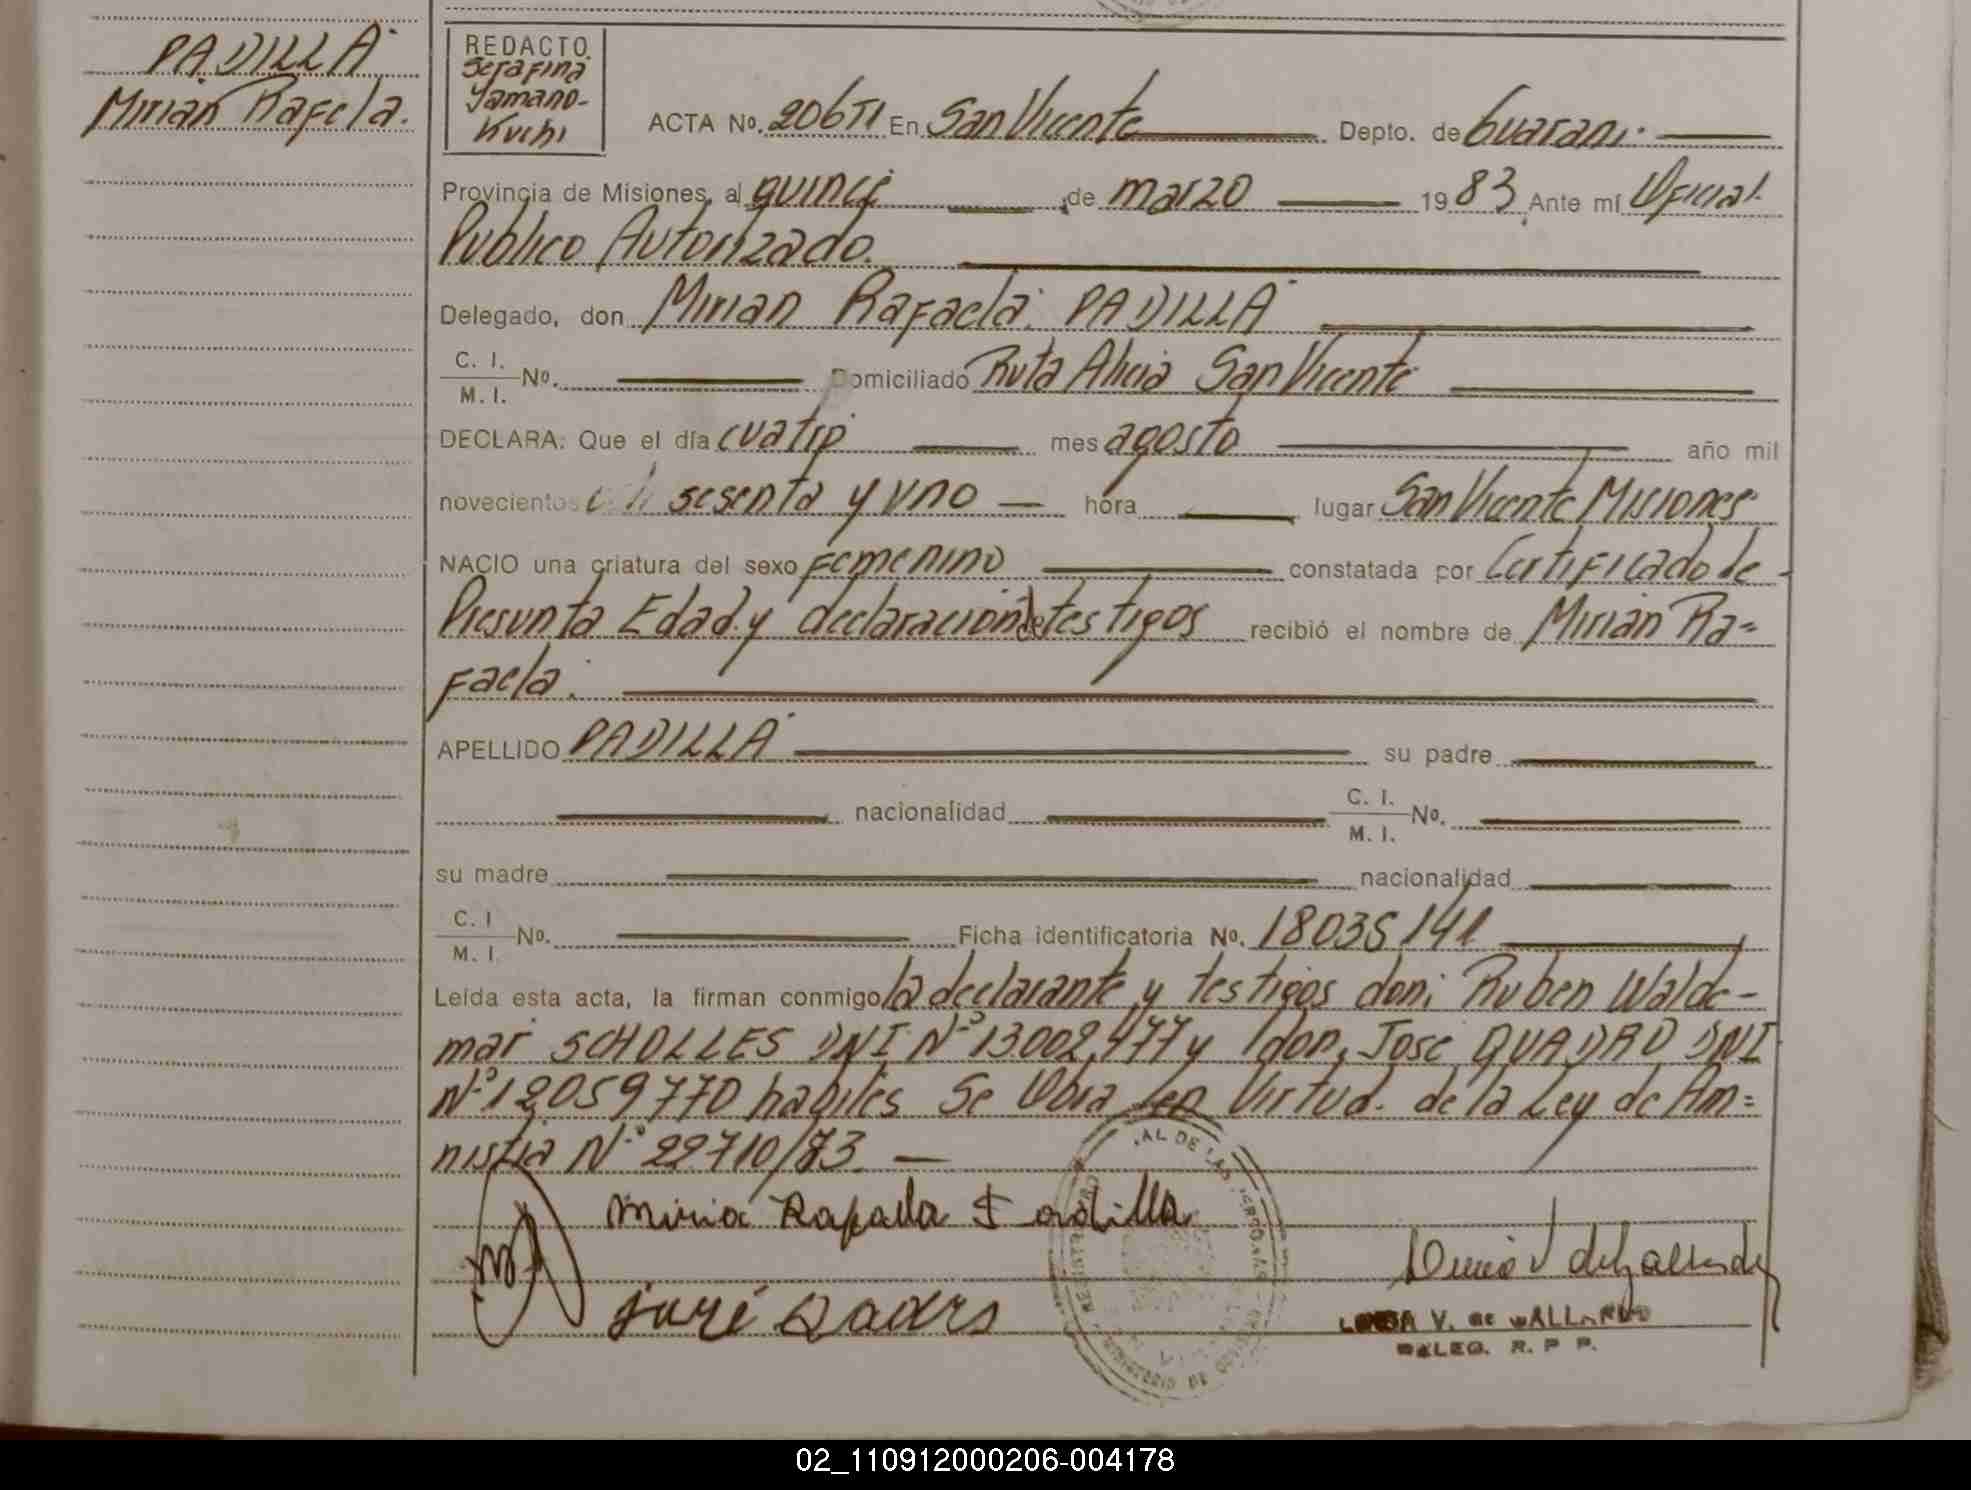 PADILLA
Mirian Rafaela.
REDACTO
Serafina
Yamano-
Kuchi
ACTA No. 206TI En San Vicente Depto. de Guarani.
Provincia de Misiones, al quince de marzo 1983 Ante mí Oficial
Publico Autorizado.
Delegado, don Mirian Rafaela PADILLA
C. I.
M. I. No. Domiciliado Ruta Alicia San Vicente
DECLARA: Que el día cuatro mes agosto año mil
novecientos sesenta y uno hora lugar San Vicente Misiones
NACIO una criatura del sexo Femenino constatada por Certificado de
Presunta Edad y declaracion de testigos recibió el nombre de Mirian Ra=
faela.
APELLIDO PADILLA su padre
nacionalidad C. I.
M. I. No.
su madre nacionalidad
C. I
M. I. No. Ficha identificatoria No. 18035141
Leída esta acta, la firman conmigo la declarante y testigos don; Ruben Walde-
mar SCHOLLES DNI Nº 13002,477 y don, Jose QUADRO DNI
Nº 12059770 habiles Se Obra en Virtud. de la Ley de Am=
nistia Nº 22710/83
Miria Rafaela Padilla
José Quadro
V. de GALLARDO
DELEG. R. P P.
02_110912000206-004178